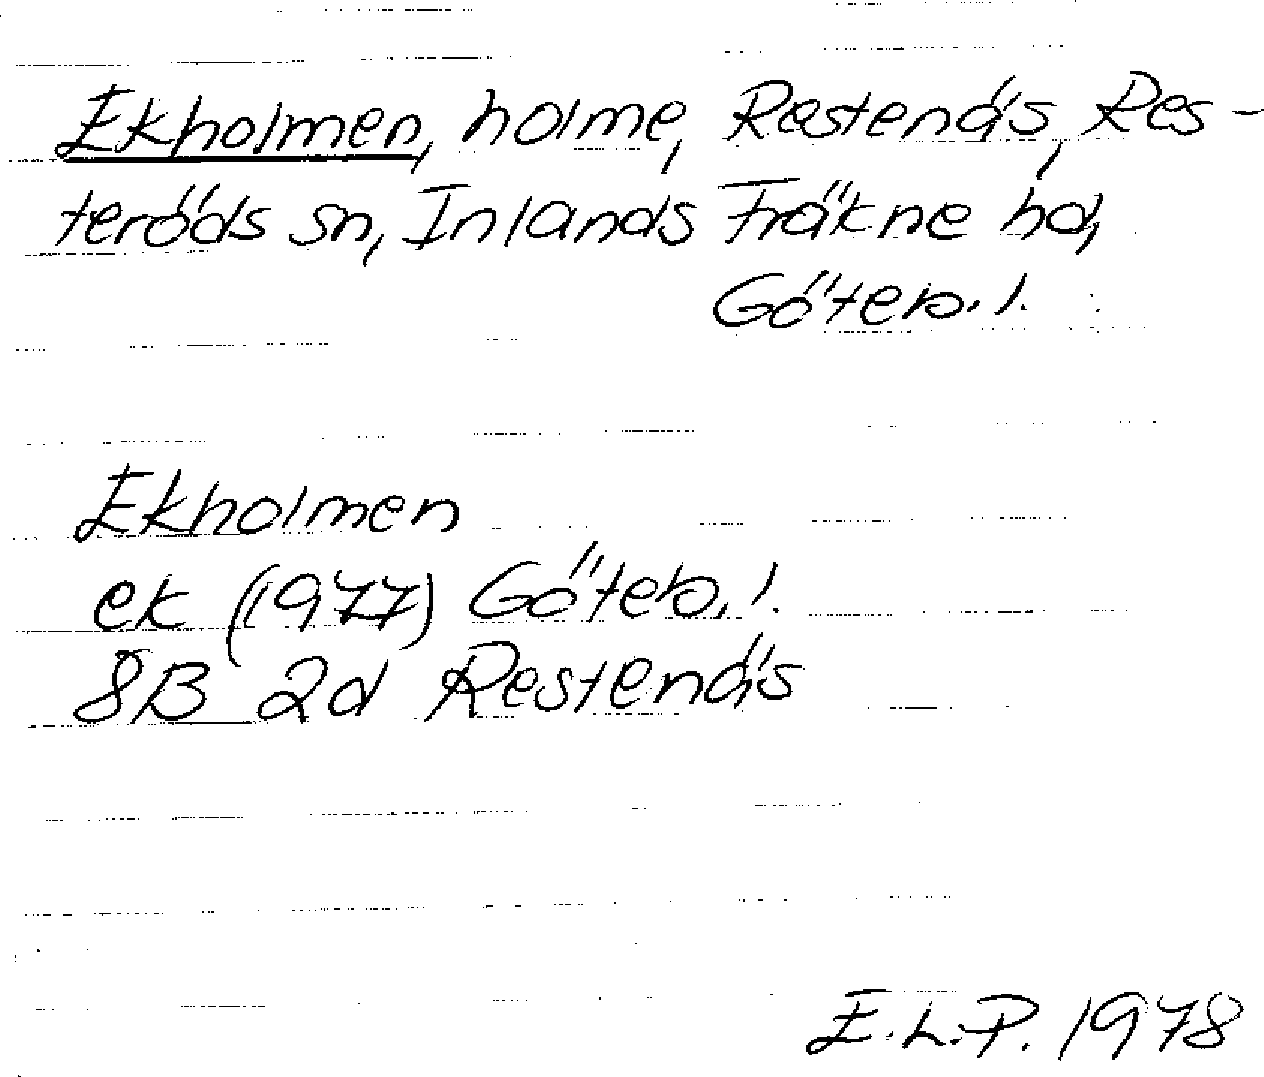 Ekholmen, holme, Restenäs, Res-
teröds sn, Inlands Fräkne hd,
Göteb. l.
Ekholmen
ek (1977) Göteb. l.
8B 2d Restenäs
E.L.P. 1978